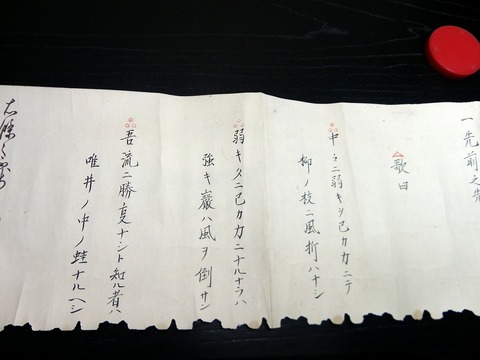 一先前之
歌曰
中々ニ弱キヲ己カ力ニテ
柳ノ枝ニ風折ハナシ
弱キタニ己カ力ニナルナラハ
強キ巖ハ風ヲ倒サン
吾流ニ勝ルナシト知ル者ハ
唯井ノ中ノ蛙ナルヘシ